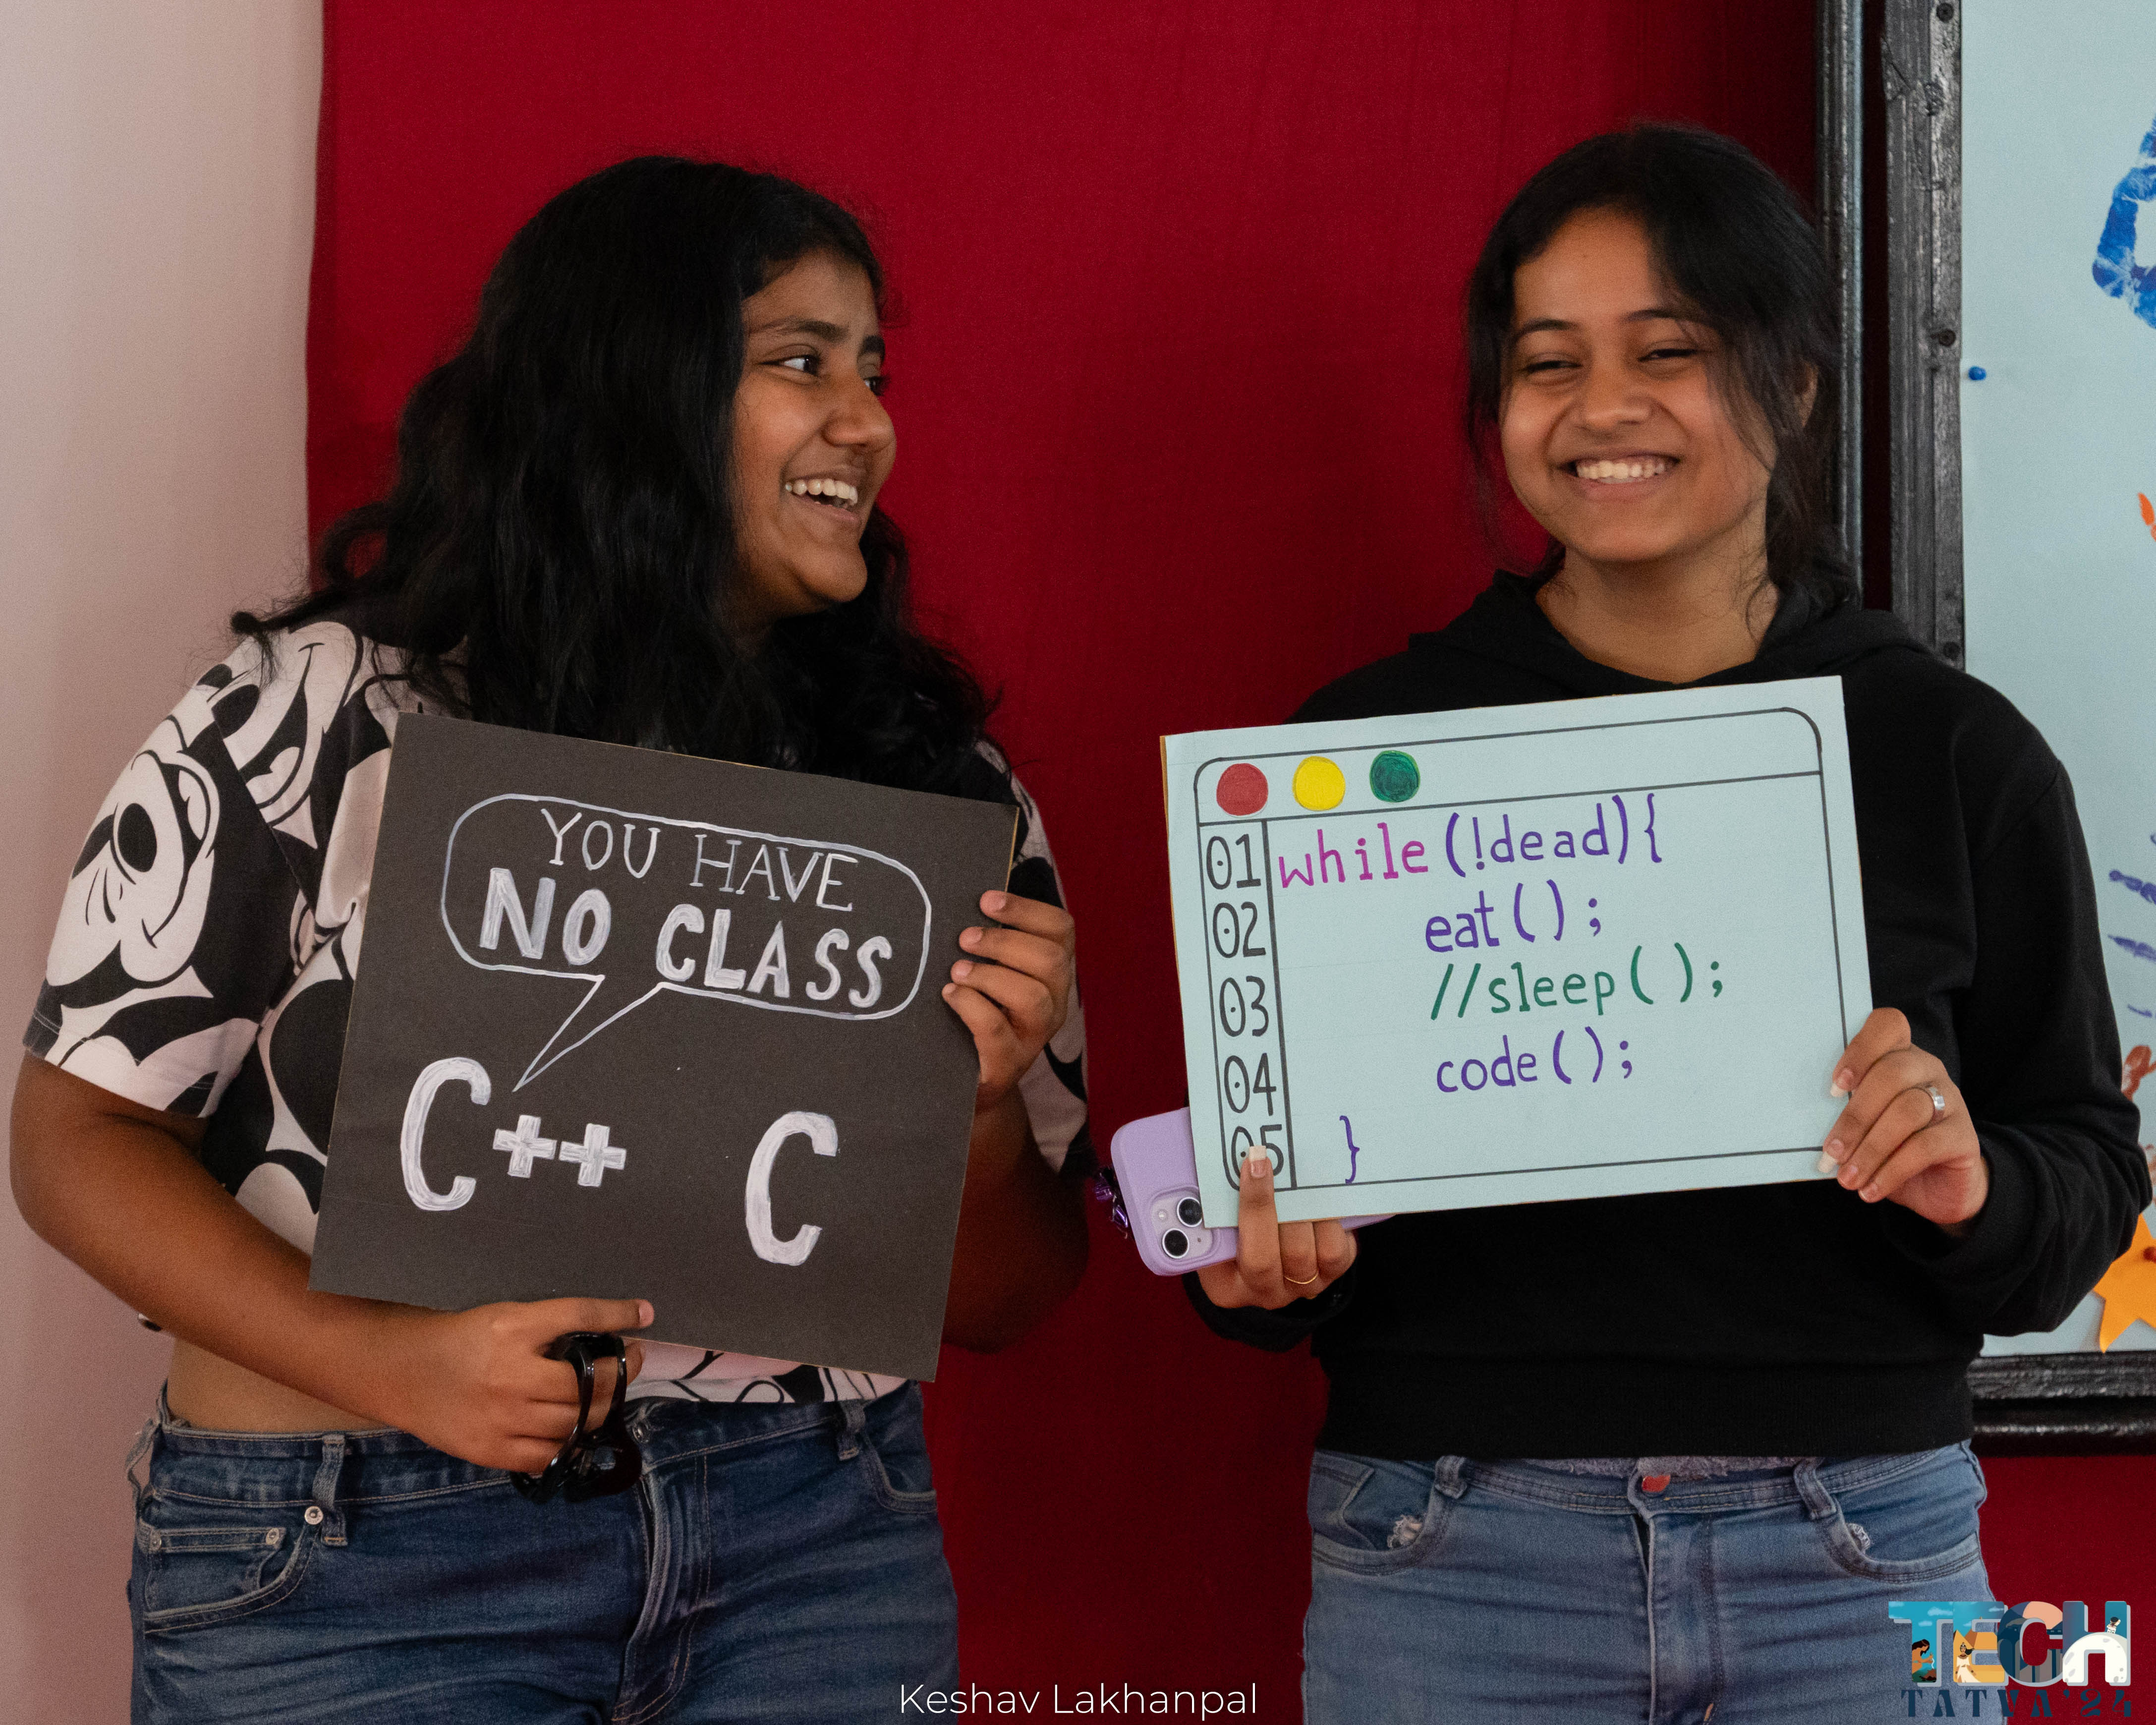 YOU HAVE
NO CLASS
C++ C
01 while(!dead){
02 eat();
03 //sleep();
04 code();
05 }
Keshav Lakhanpal
TECH
TATVA'24